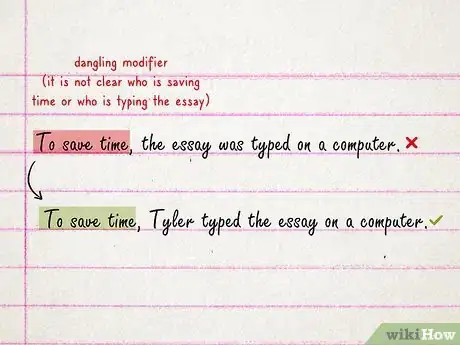 dangling modifier
(it is not clear who is saving
time or who is typing the essay)
To save time, the essay was typed on a computer.
To save time, Tyler typed the essay on a computer.
wikiHow